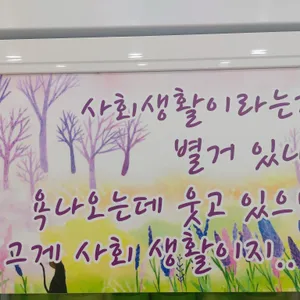 사회생활이라는
별거 있나
욕나오는데 웃고 있으
그게 사회 생활이지..